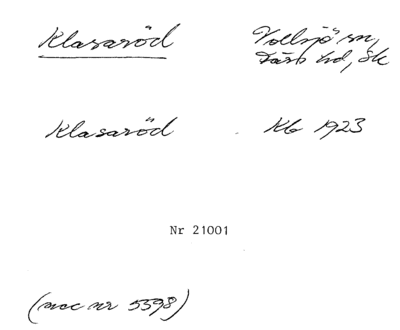 Klasaröd Vollsjö sn,
Färs hd, Sk
Klasaröd Kb 1923
Nr 21001
(acc nr 5598)